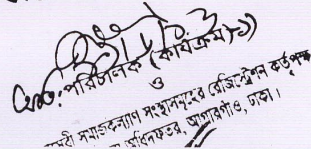 অতিঃ পরিচালক (কার্যক্রম-১)
ও
সমাজকল্যাণ সংস্থাসমূহের রেজিস্ট্রেশন কর্তৃপক্ষ
আগারগাঁও, ঢাকা।